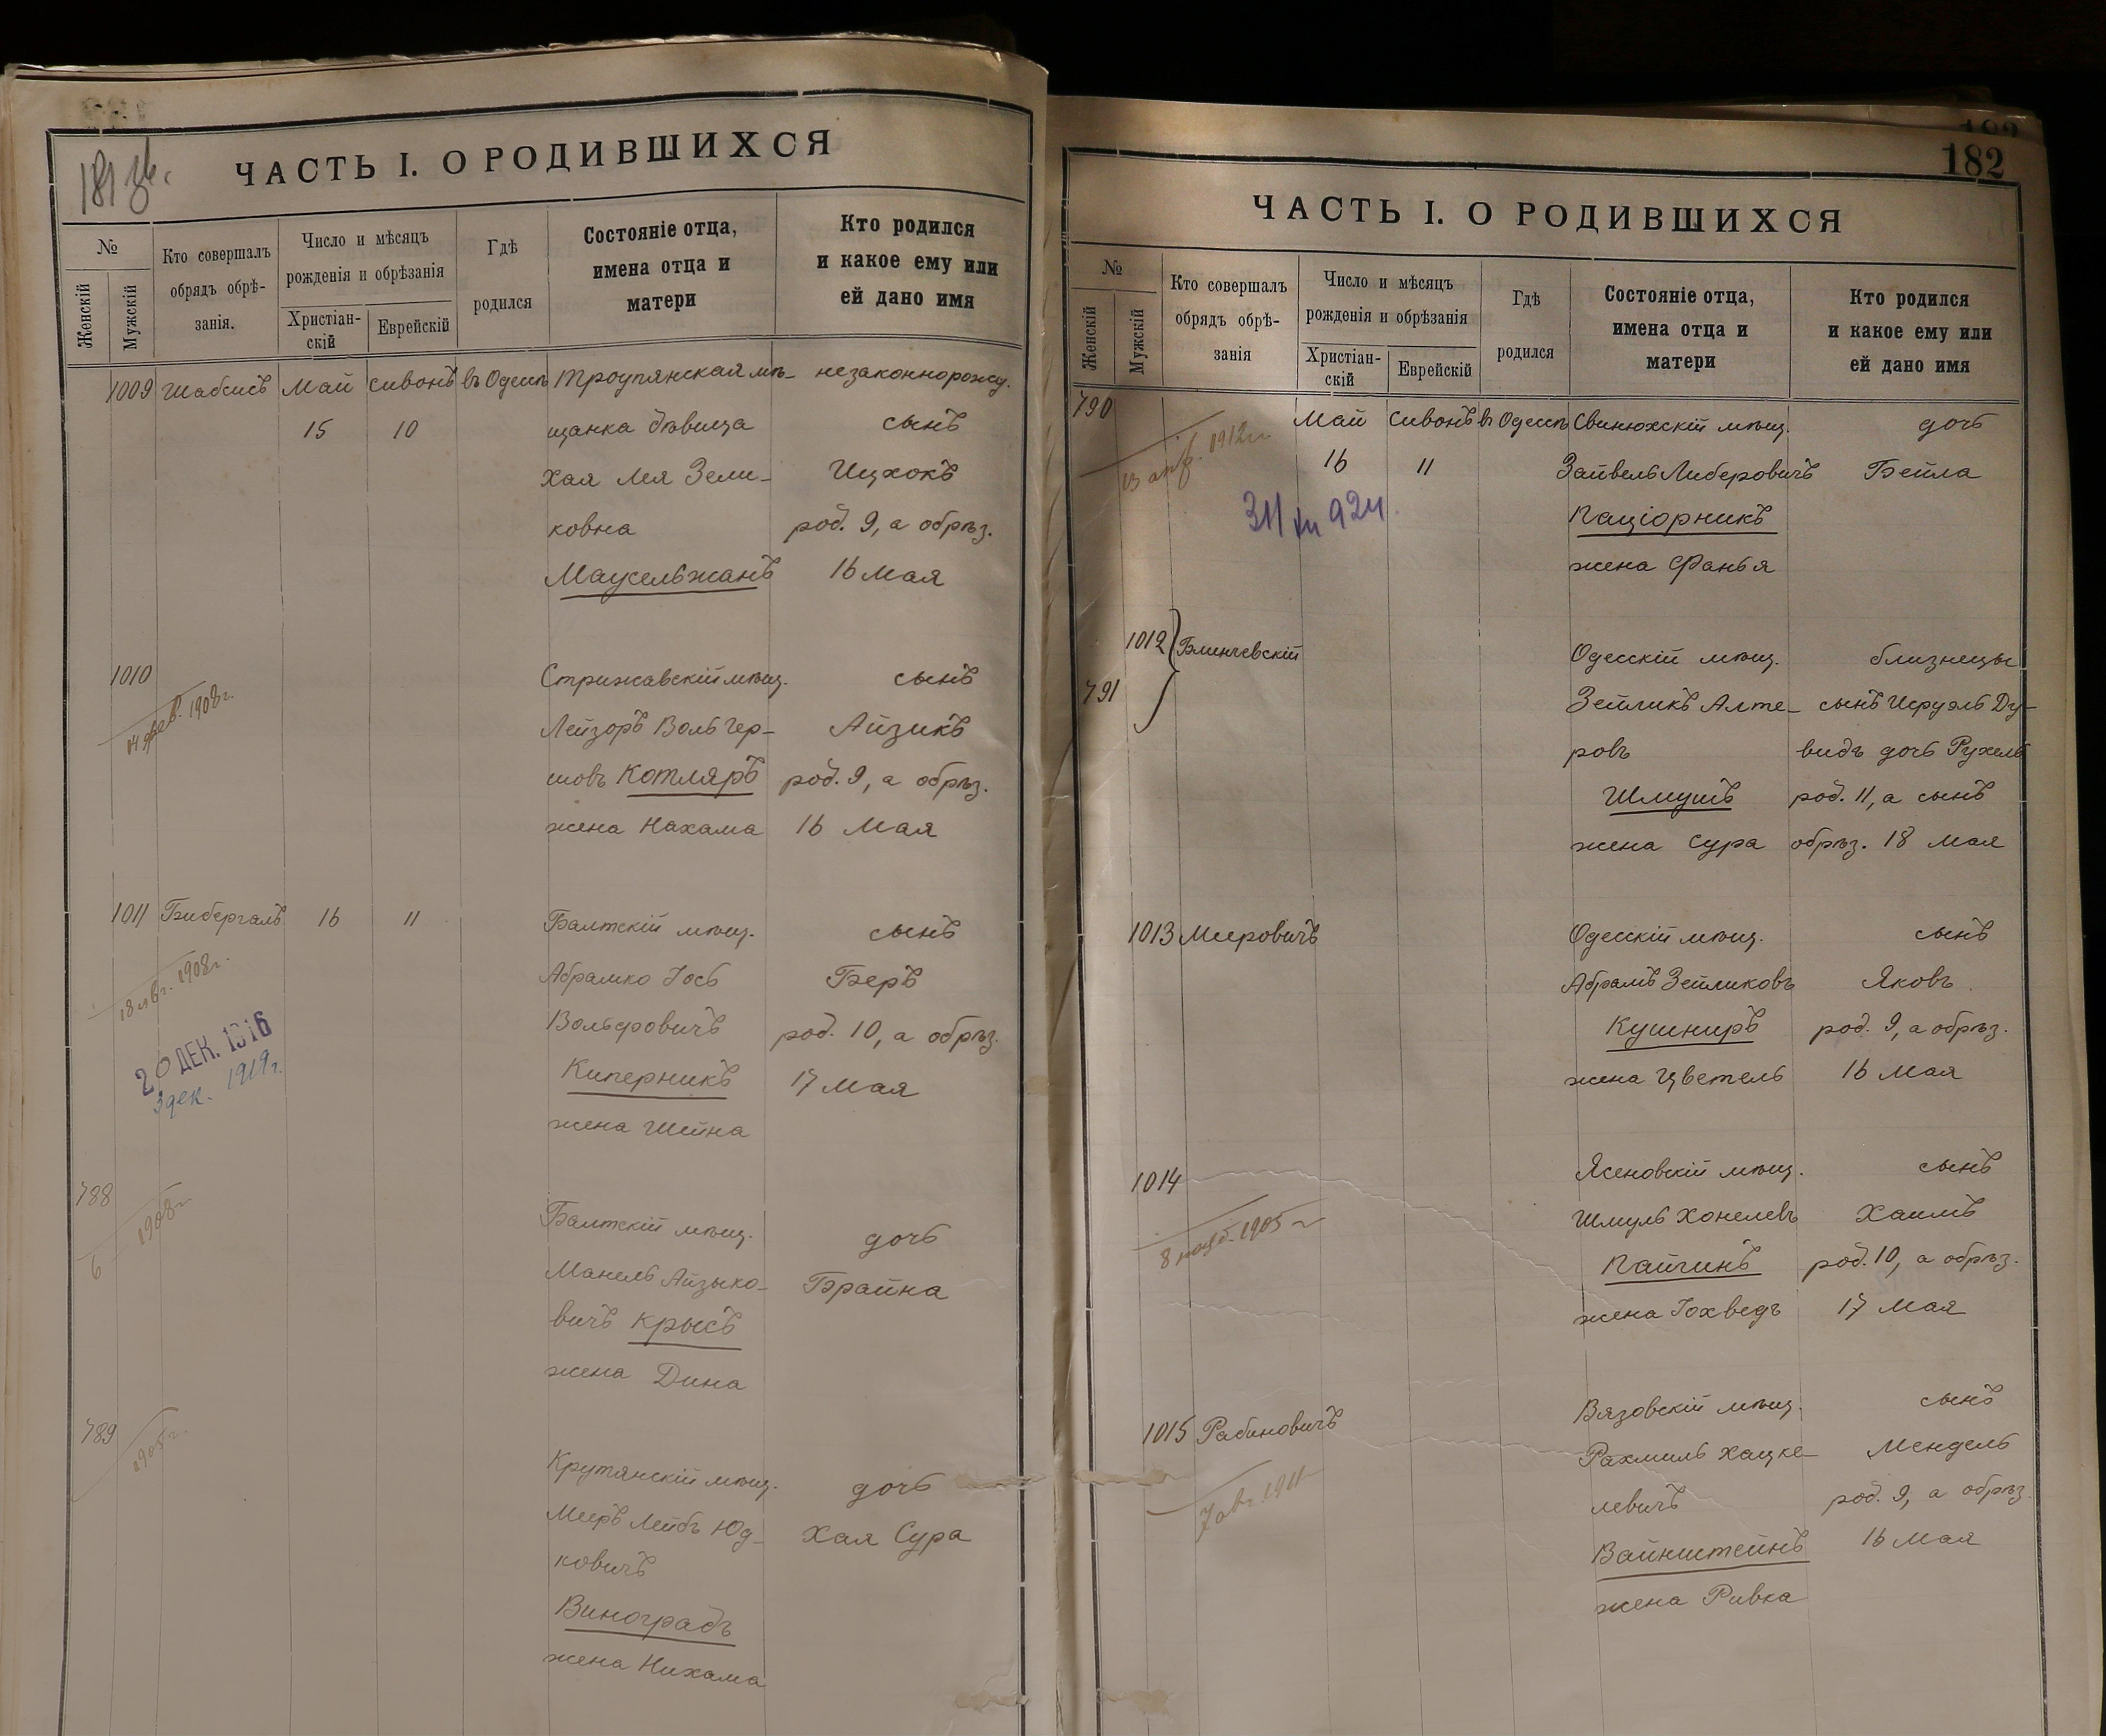 181 об.
ЧАСТЬ I. О РОДИВШИХСЯ
№
Женскій
Мужскій
Кто совершалъ
обрядъ обрѣ-
занія.
Число и мѣсяцъ
рожденія и обрѣзанія
Христіан-
скій
Еврейскій
Гдѣ
родился
Состояніе отца,
имена отца и
матери
Кто родился
и какое ему или
ей дано имя
1009 Шабсисъ Май Сивонъ въ Одессѣ Троупянская мѣ- незаконнорожд.
15 10 щанка дѣвица сынъ
Хая Лея Зели- Ицхокъ
ковна род. 9, а обрѣз.
Маусельжанъ 16 Мая
1010 Стрижавскій мѣщ. сынъ
1908 г. Лейзоръ Воль Гер- Айзикъ
шовъ Котляръ род. 9, а обрѣз.
жена Нахама 16 Мая
1011 Бибергалъ 16 11 Балтскій мѣщ. сынъ
18 1908 г. Абрамко Іось Беръ
Вольфовичъ род. 10, а обрѣз.
20 ДЕК. 1916
3 дек. 1919 г.
Киперникъ 17 Мая
жена Шейна
788 Балтскій мѣщ. дочь
6 1908 г. Манель Айзыко- Брайна
вичъ Крысъ
жена Дина
789 Крутянскій мѣщ. дочь
1905 г. Меръ Лейбъ Юд- Хая Сура
ковичъ
Виноградъ
жена Нихама
182
ЧАСТЬ I. О РОДИВШИХСЯ
№
Женскій
Мужскій
Кто совершалъ
обрядъ обрѣ-
занія
Число и мѣсяцъ
рожденія и обрѣзанія
Христіан-
скій
Еврейскій
Гдѣ
родился
Состояніе отца,
имена отца и
матери
Кто родился
и какое ему или
ей дано имя
790 Май Сивонъ въ Одессѣ Свинюхскій мѣщ. дочь
13 апр. 1912 г. 16 11 Зайвель Либеровичъ Бейла
Пацiорникъ
жена Фанья
1012 Блинчевскій Одесскій мѣщ. близнецы
791 Зейликъ Алте- сынъ Исруэль Ду-
ровъ видъ дочь Рухель
Шмушъ род. 11, а сынъ
жена Сура обрѣз. 18 мая
1013 Мееровичъ Одесскій мѣщ. сынъ
Абрамъ Зейликовъ Яковъ
Кушниръ род. 9, а обрѣз.
жена Цветель 16 Мая
1014 Ясеновскій мѣщ. сынъ
8 1905 г. Шмуль Хонелевъ Хаимъ
Пайчинъ род. 10, а обрѣз.
жена Іохведъ 17 Мая
1015 Рабиновичъ Вязовскій мѣщ. сынъ
7 авг. 1911 Рахмиль Хацке- Мендель
левичъ род. 9, а обрѣз.
Вайнштейнъ 16 Мая
жена Ривка